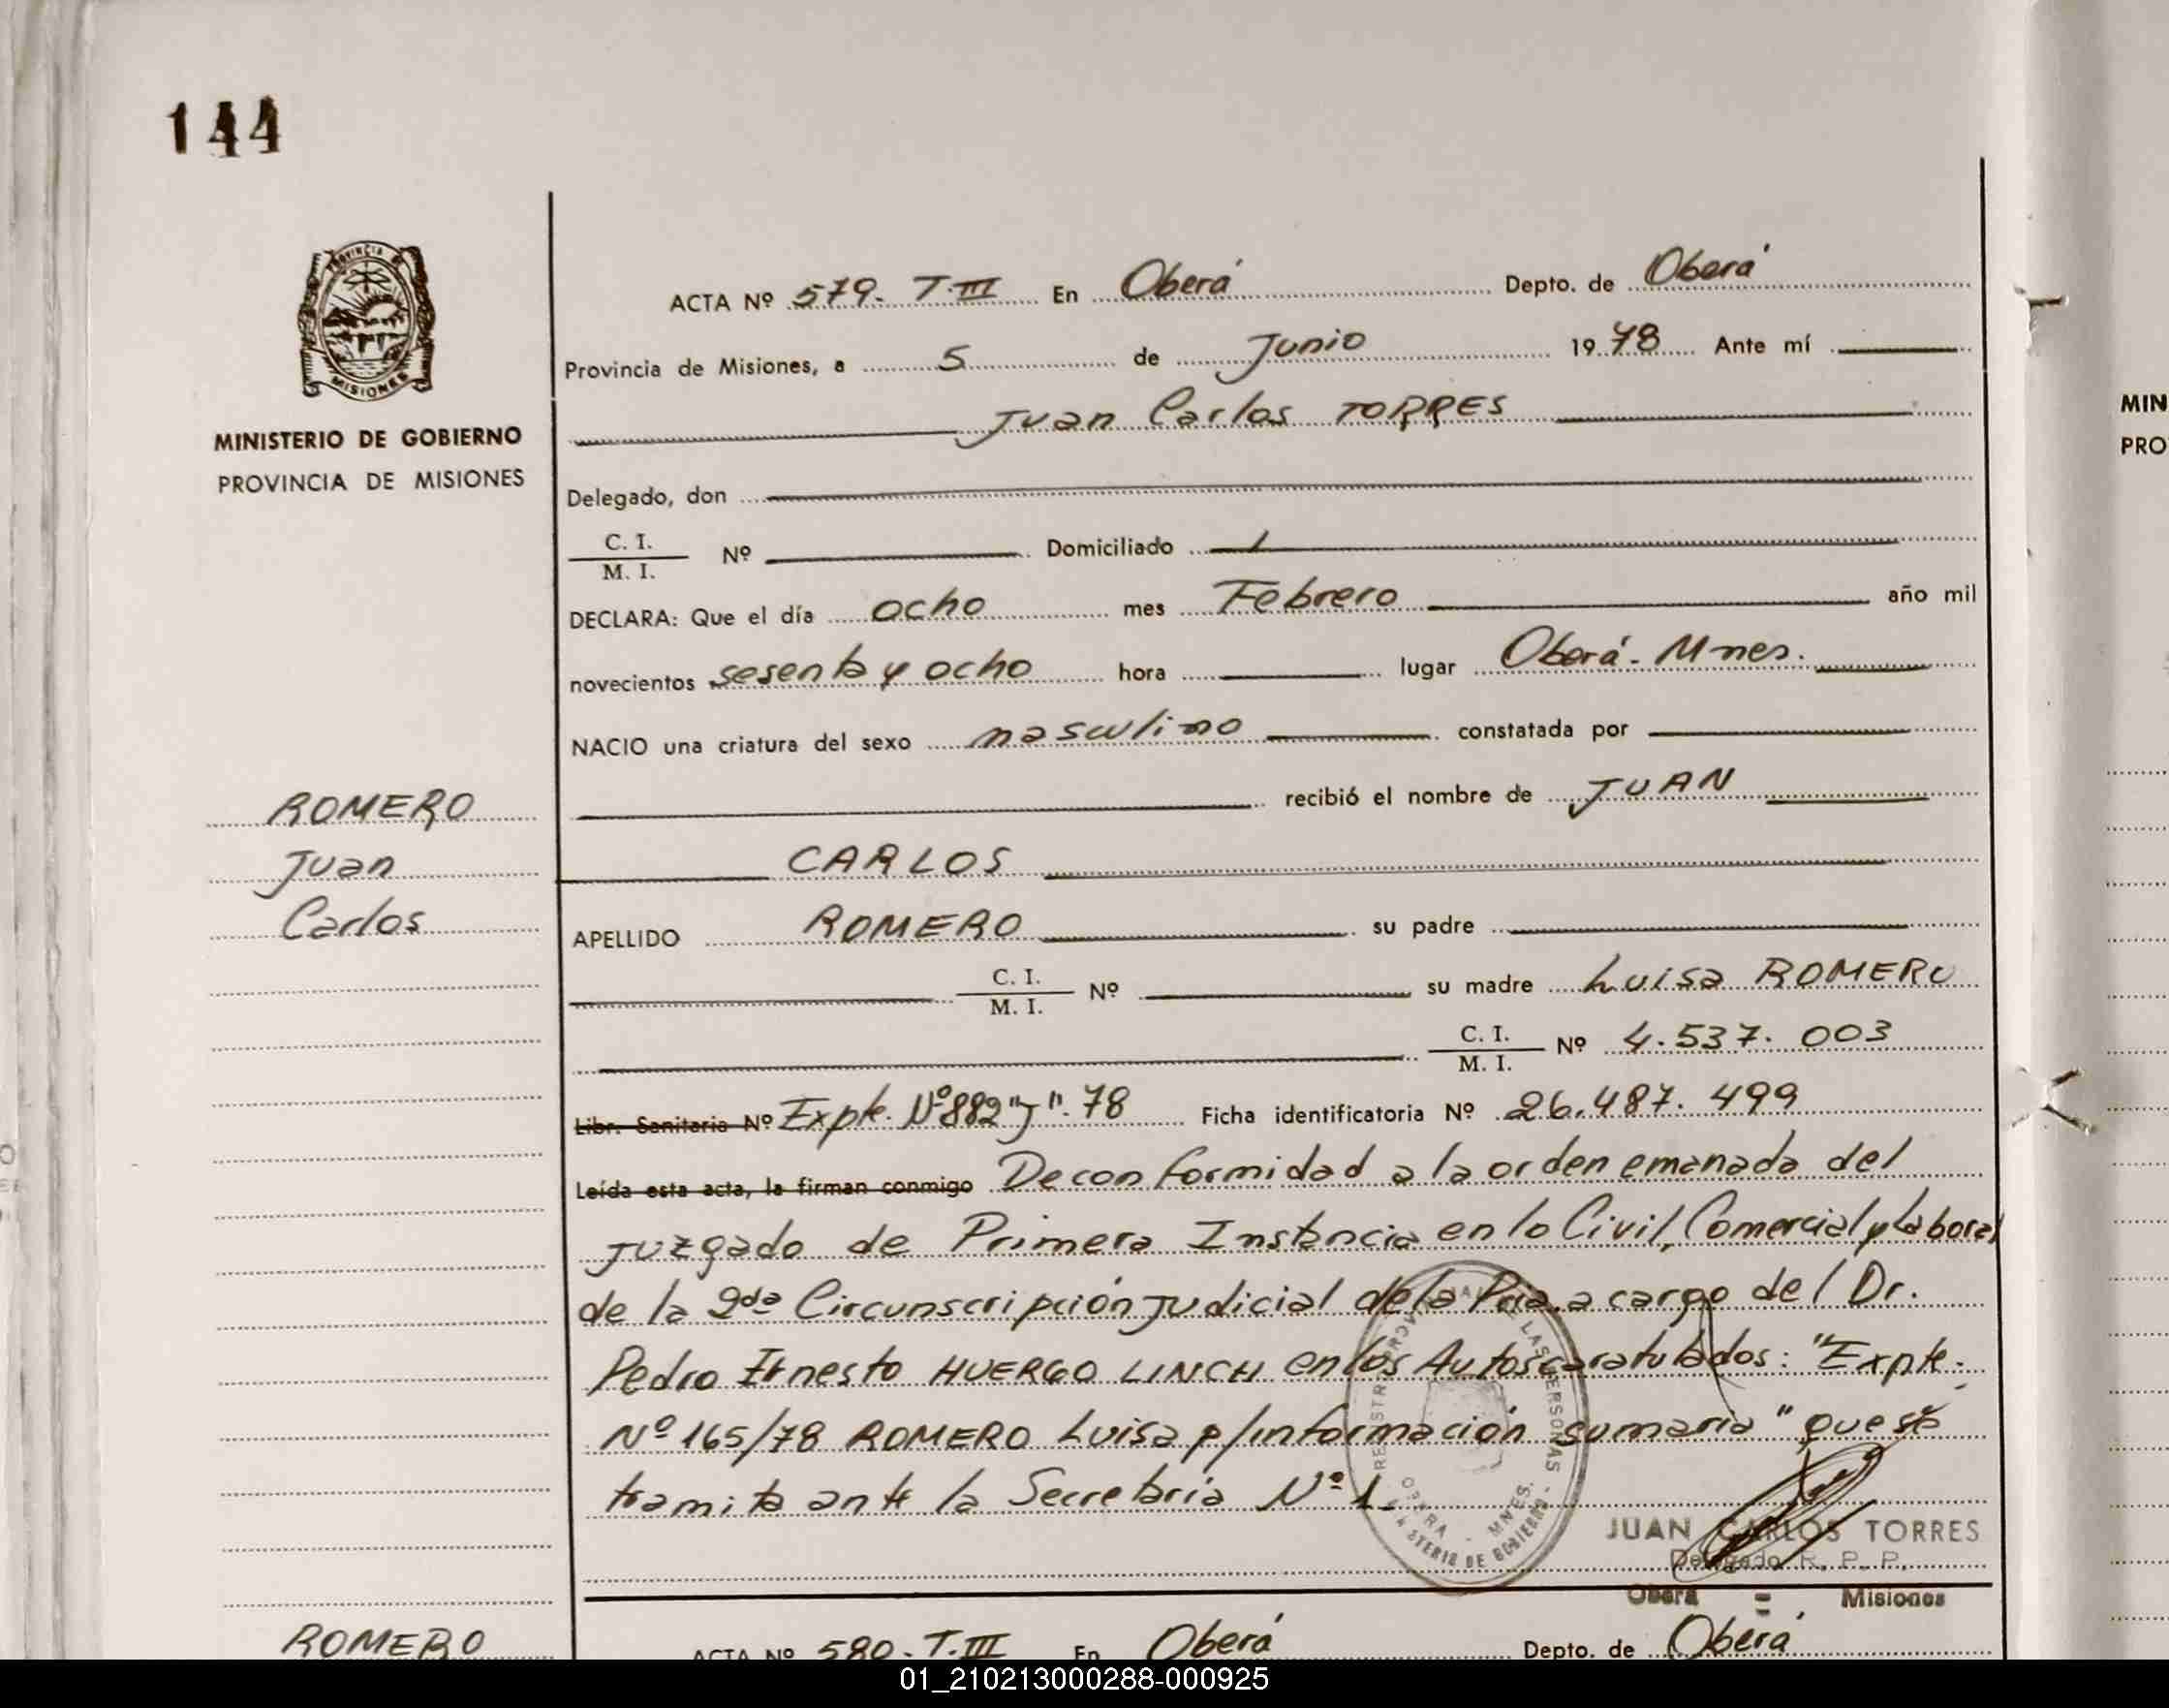 144
PROVINCIA DE
MISIONES
MINISTERIO DE GOBIERNO
PROVINCIA DE MISIONES
ACTA Nº 579. T. III En Oberá Depto. de Oberá
Provincia de Misiones, a 5 de Junio 1978 Ante mí
Juan Carlos TORRES
Delegado, don
C. I.
M. I.
Nº Domiciliado
DECLARA: Que el día ocho mes Febrero año mil
novecientos sesenta y ocho hora lugar Oberá - Mnes.
NACIO una criatura del sexo masculino constatada por
recibió el nombre de JUAN
CARLOS
APELLIDO ROMERO su padre
C. I.
M. I.
Nº su madre Luisa ROMERO
C. I.
M. I.
Nº 4.537.003
Libr. Sanitaria Nº Expte. Nº 882 "J". 78 Ficha identificatoria Nº 26.487.499
Leída esta acta, la firman conmigo De conformidad a la orden emanada del
Juzgado de Primera Instancia en lo Civil, Comercial y Laboral
de la 2da Circunscripción Judicial de la Pcia. a cargo del Dr.
Pedro Ernesto HUERGO LINCH en los Autos caratulados: "Expte.
Nº 165/78 ROMERO Luisa p/información sumaria" que se
tramita ante la Secretaría Nº 1.
ROMERO
Juan
Carlos
JUAN CARLOS TORRES
Delegado R. P. P.
Oberá = Misiones
ROMERO
ACTA Nº 580. T. III En Oberá Depto. de Oberá
MIN
PRO
01_210213000288-000925